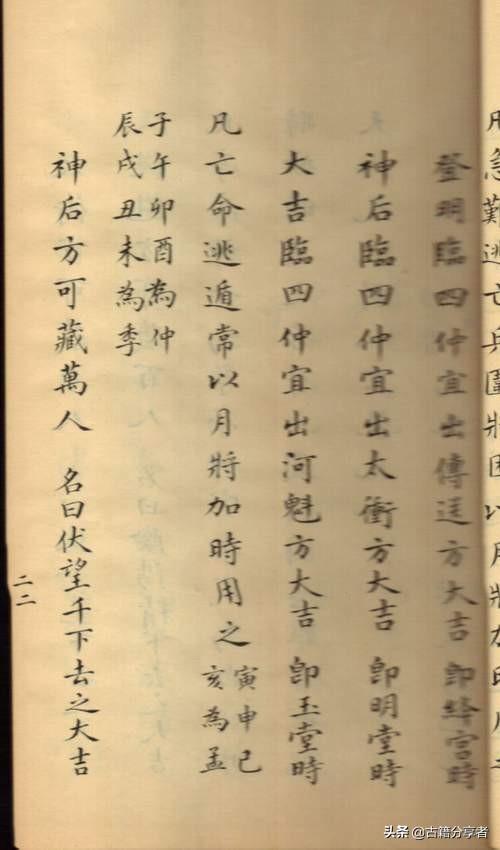 凡急難逃亡兵圍將困以月將加時用
登明臨四仲宜出傳送方大吉 卽絳宮時
神后臨四仲宜出太衝方大吉 卽明堂時
大吉臨四仲宜出河魁方大吉 卽玉堂時
凡亡命逃遁常以月將加時用之 寅申巳
亥為孟
子午卯酉為仲
辰戌丑未為季
神后方可藏萬人 名曰伏望千下去之大吉
二二
头条 @古籍分享者